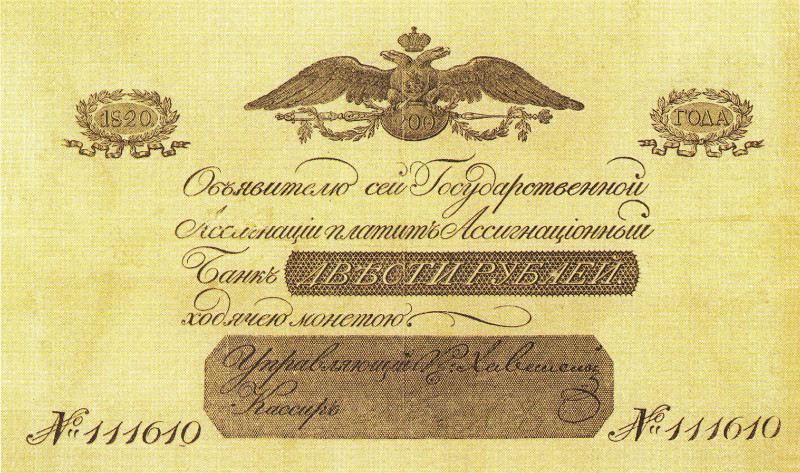 1820. ГОДА
200
Объявителю сей Государственной
Ассигнаціи платитъ Ассигнаціонный
Банкъ ДВѢСТИ РУБЛЕЙ
ходячею монетою.
Управляющій
Кассиръ
№ 111610 № 111610